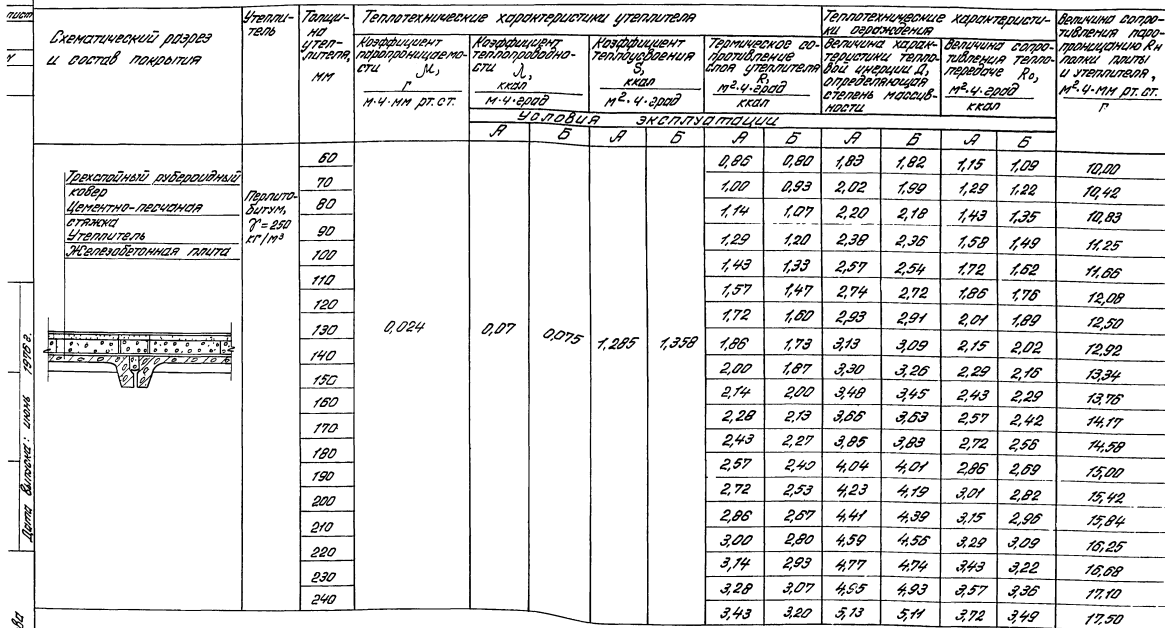 Схематический разрез
и состав покрытия
Утепли-
тель
Толщи-
на
утеп-
лителя,
мм
Теплотехнические характеристики утеплителя
Коэффициент
паропроницаемо-
сти μ,
г
м·ч·мм рт.ст.
Коэффициент
теплопроводно-
сти λ,
ккал
м·ч·град
Коэффициент
теплоусвоения
S,
ккал
м²·ч·град
Термическое со-
противление
слоя утеплителя
R,
м²·ч·град
ккал
Теплотехнические характеристи-
ки ограждения
Величина харак-
теристики тепло-
вой инерции Д,
определяющая
степень массив-
ности
Величина сопро-
тивления тепло-
передаче R₀,
м²·ч·град
ккал
Величина сопро-
тивления паро-
проницанию Rн
полки плиты
и утеплителя,
м²·ч·мм рт.ст.
г
Условия эксплуатации
А Б А Б А Б А Б А Б
Трехслойный рубероидный
ковер
Цементно-песчаная
стяжка
Утеплитель
Железобетонная плита
Перлито-
битум,
γ=250
кг/м³
0,024 0,07 0,075 1,285 1,358
60 0,86 0,80 1,83 1,82 1,15 1,09 10,00
70 1,00 0,93 2,02 1,99 1,29 1,22 10,42
80 1,14 1,07 2,20 2,18 1,43 1,35 10,83
90 1,29 1,20 2,38 2,36 1,58 1,49 11,25
100 1,43 1,33 2,57 2,54 1,72 1,62 11,66
110 1,57 1,47 2,74 2,72 1,86 1,76 12,08
120 1,72 1,60 2,93 2,91 2,01 1,89 12,50
130 1,86 1,73 3,13 3,09 2,15 2,02 12,92
140 2,00 1,87 3,30 3,26 2,29 2,16 13,34
150 2,14 2,00 3,48 3,45 2,43 2,29 13,76
160 2,28 2,13 3,66 3,63 2,57 2,42 14,17
170 2,43 2,27 3,85 3,83 2,72 2,56 14,58
180 2,57 2,40 4,04 4,01 2,86 2,69 15,00
190 2,72 2,53 4,23 4,19 3,01 2,82 15,42
200 2,86 2,67 4,41 4,39 3,15 2,96 15,84
210 3,00 2,80 4,59 4,56 3,29 3,09 16,25
220 3,14 2,93 4,77 4,74 3,43 3,22 16,68
230 3,28 3,07 4,95 4,93 3,57 3,36 17,10
240 3,43 3,20 5,13 5,11 3,72 3,49 17,50
Дата выпуска: июнь 1976 г.